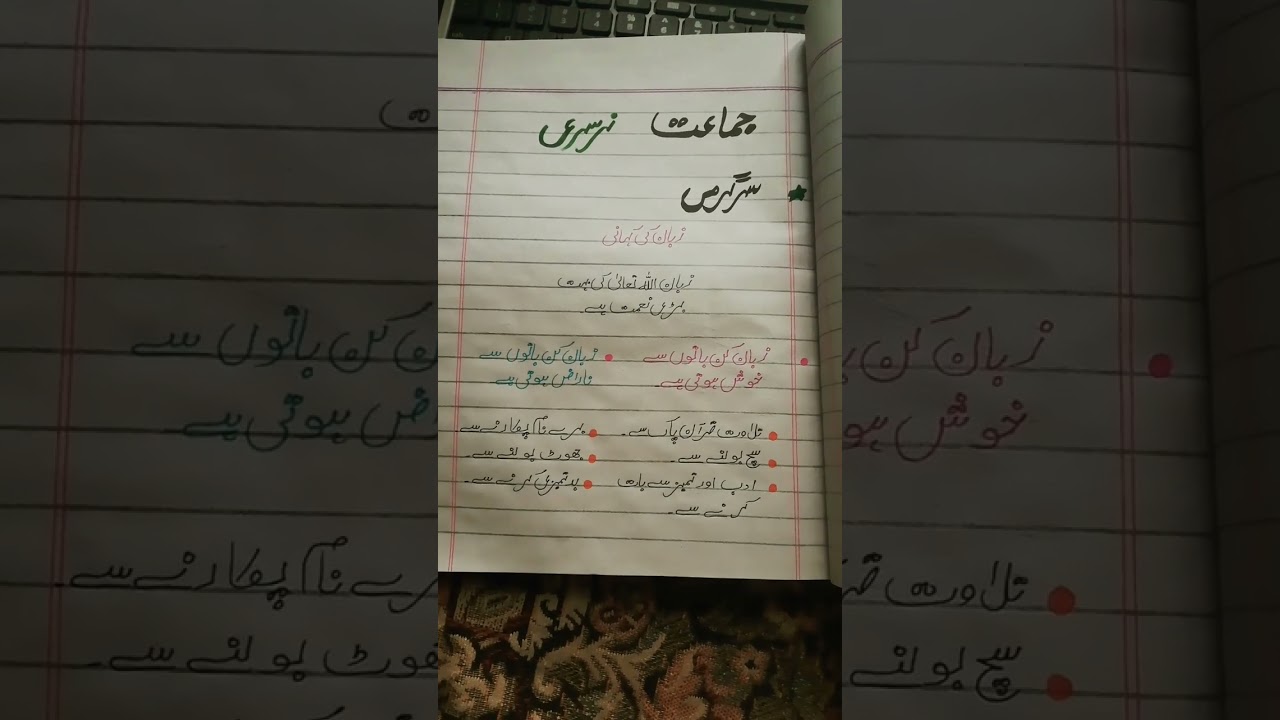 جماعت نرسری
سرگرمی
زبان کی کہانی
زبان اللہ تعالیٰ کی بہت
بڑی نعمت ہے۔
زبان کن باتوں سے
خوش ہوتی ہے۔
تلاوت قرآن پاک سے۔
سچ بولنے سے۔
ادب اور تمیز سے بات
کرنے سے۔
زبان کن باتوں سے
ناراض ہوتی ہے
برے نام پکارنے سے
جھوٹ بولنے سے۔
بدتمیزی کرنے سے۔